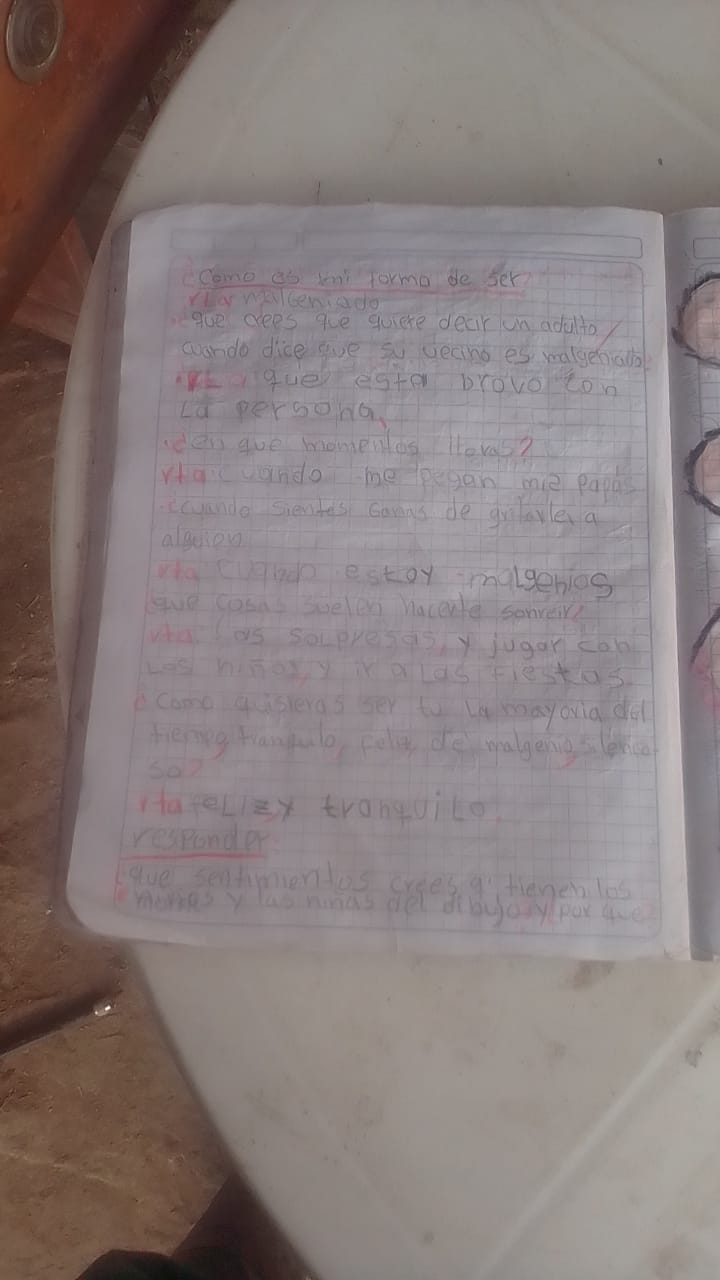 ¿Como es mi forma de ser?
rta malgeniado
¿que crees que quiere decir un adulto
cuando dice que su vecino es malgeniado
rta que esta bravo con
La persona.
¿en que momentos lloras?
rta cuando me pegan mis papas
¿cuando sientes ganas de gritarle a
alguien
rta cuando estoy malgenios
que cosas suelen hacerte sonreir?
rta Las solpresas, y jugar con
Los niños, y ir a Las fiestas.
¿Como quisieras ser tu La mayoria del
tiempo tranquilo, feliz, de malgenio, silencio
so?
rta feLiz, y tranquiLo.
responder
¿que sentimientos crees q' tienen los
niños y las niñas del dibujo y por que?